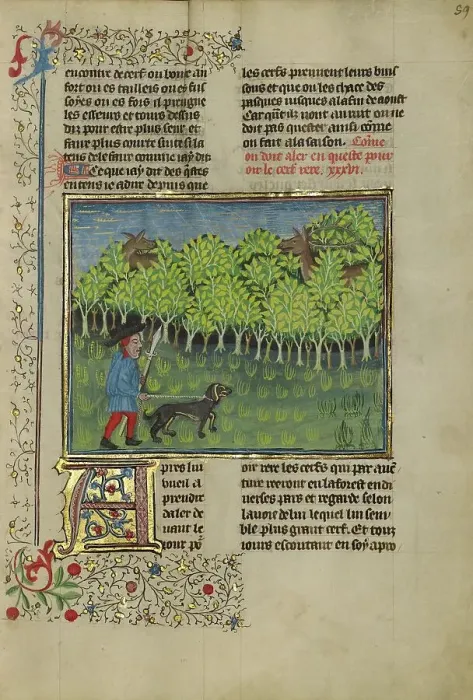 encontre de cerf ou boute an
fort ou es tailleis ou es fus
soyes ou es fors il prengne
les esseurs et tours dessus
diz pour estre plus seur et
faire plus courte suite sil a
temps de le faire comme iay dit
Ce que iay dit des questes
entens ie adire depuis que
les cerfs prennent leurs buis
sons et que on les chace des
pasques iusques ala fin de aoust
Car quant ilz vont au ruit on ne
doit pas quester ainsi come
on fait ala saison. Come
on doit aler en queste pour
oir le cerf rere. xxxvi.
Apres luy
vueil a
prendre
daler de
uant le
iour po
oir rere les cerfs qui par auen
ture reeront en la forest en di
uerses pars et regarde selon
la voix de lun lequel lui sem
ble plus grant cerf. Et touz
iours escoutant en soy apro